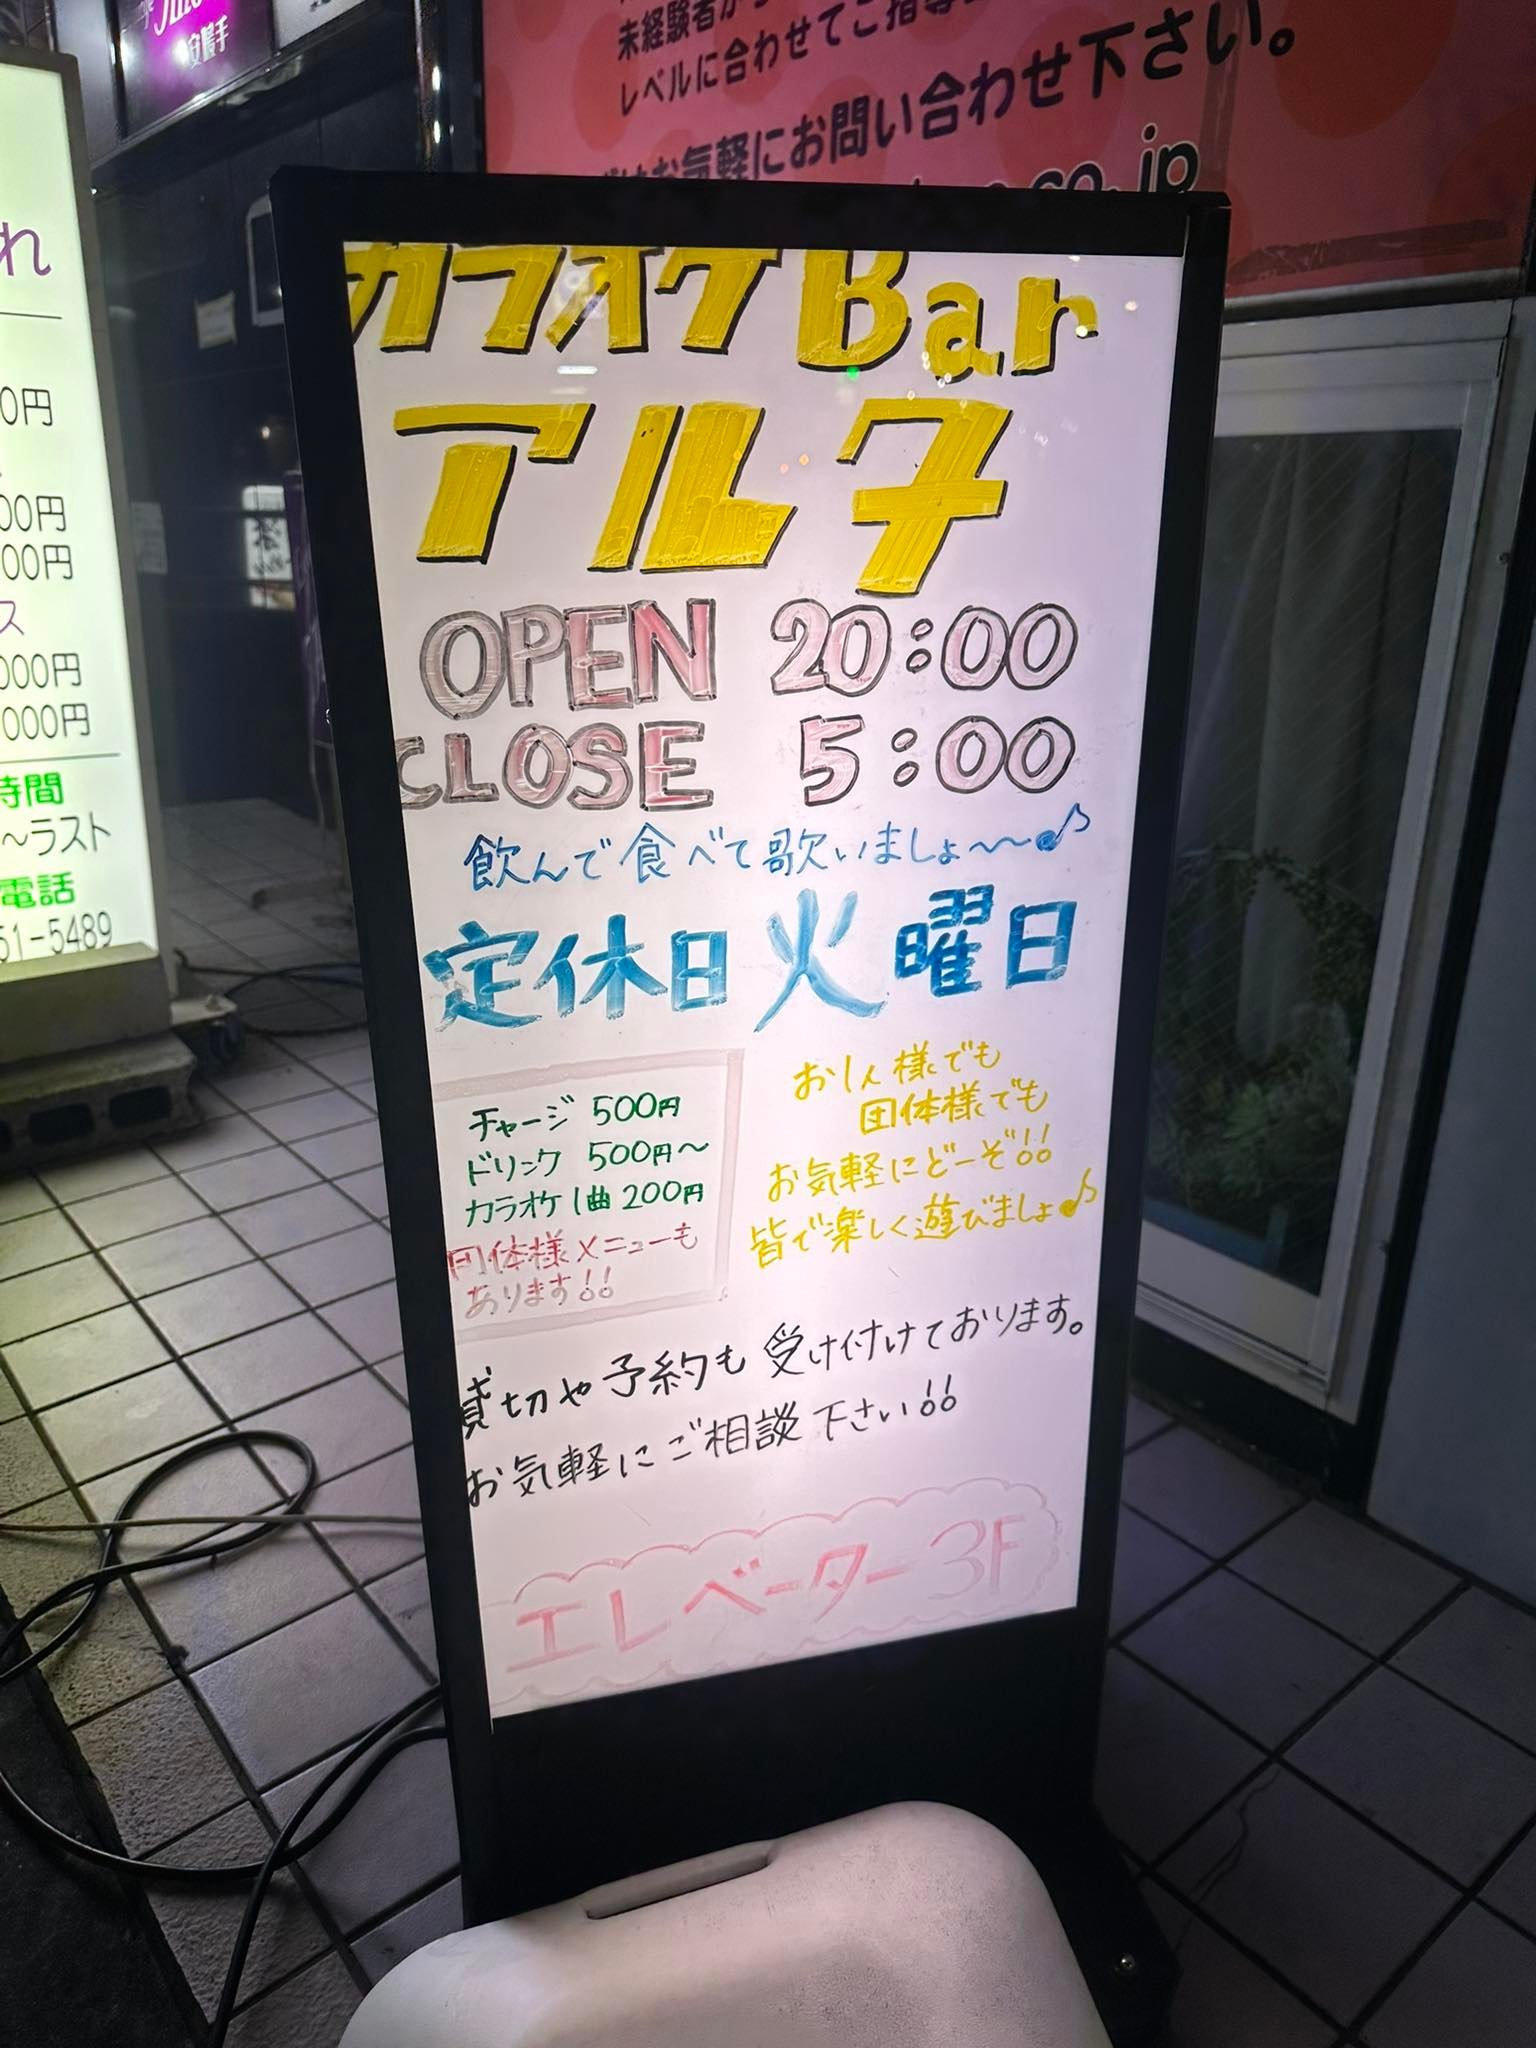 安 順手
未経験者か
レベルに合わせてご指導
お気軽にお問い合わせ下さい。
co.jp
れ
0円
00円
00円
ス
000円
000円
時間
～ラスト
電話
51-5489
カラオケBar
アルチ
OPEN 20:00
CLOSE 5:00
飲んで食べて歌いましょ〜〜♪
定休日火曜日
チャージ 500円
ドリンク 500円〜
カラオケ1曲200円
団体様メニューも
あります!!
お1人様でも
団体様でも
お気軽にどーぞ!!
皆で楽しく遊びましょ♪
貸切や予約も受け付けております。
お気軽にご相談下さい!!
エレベーター3F